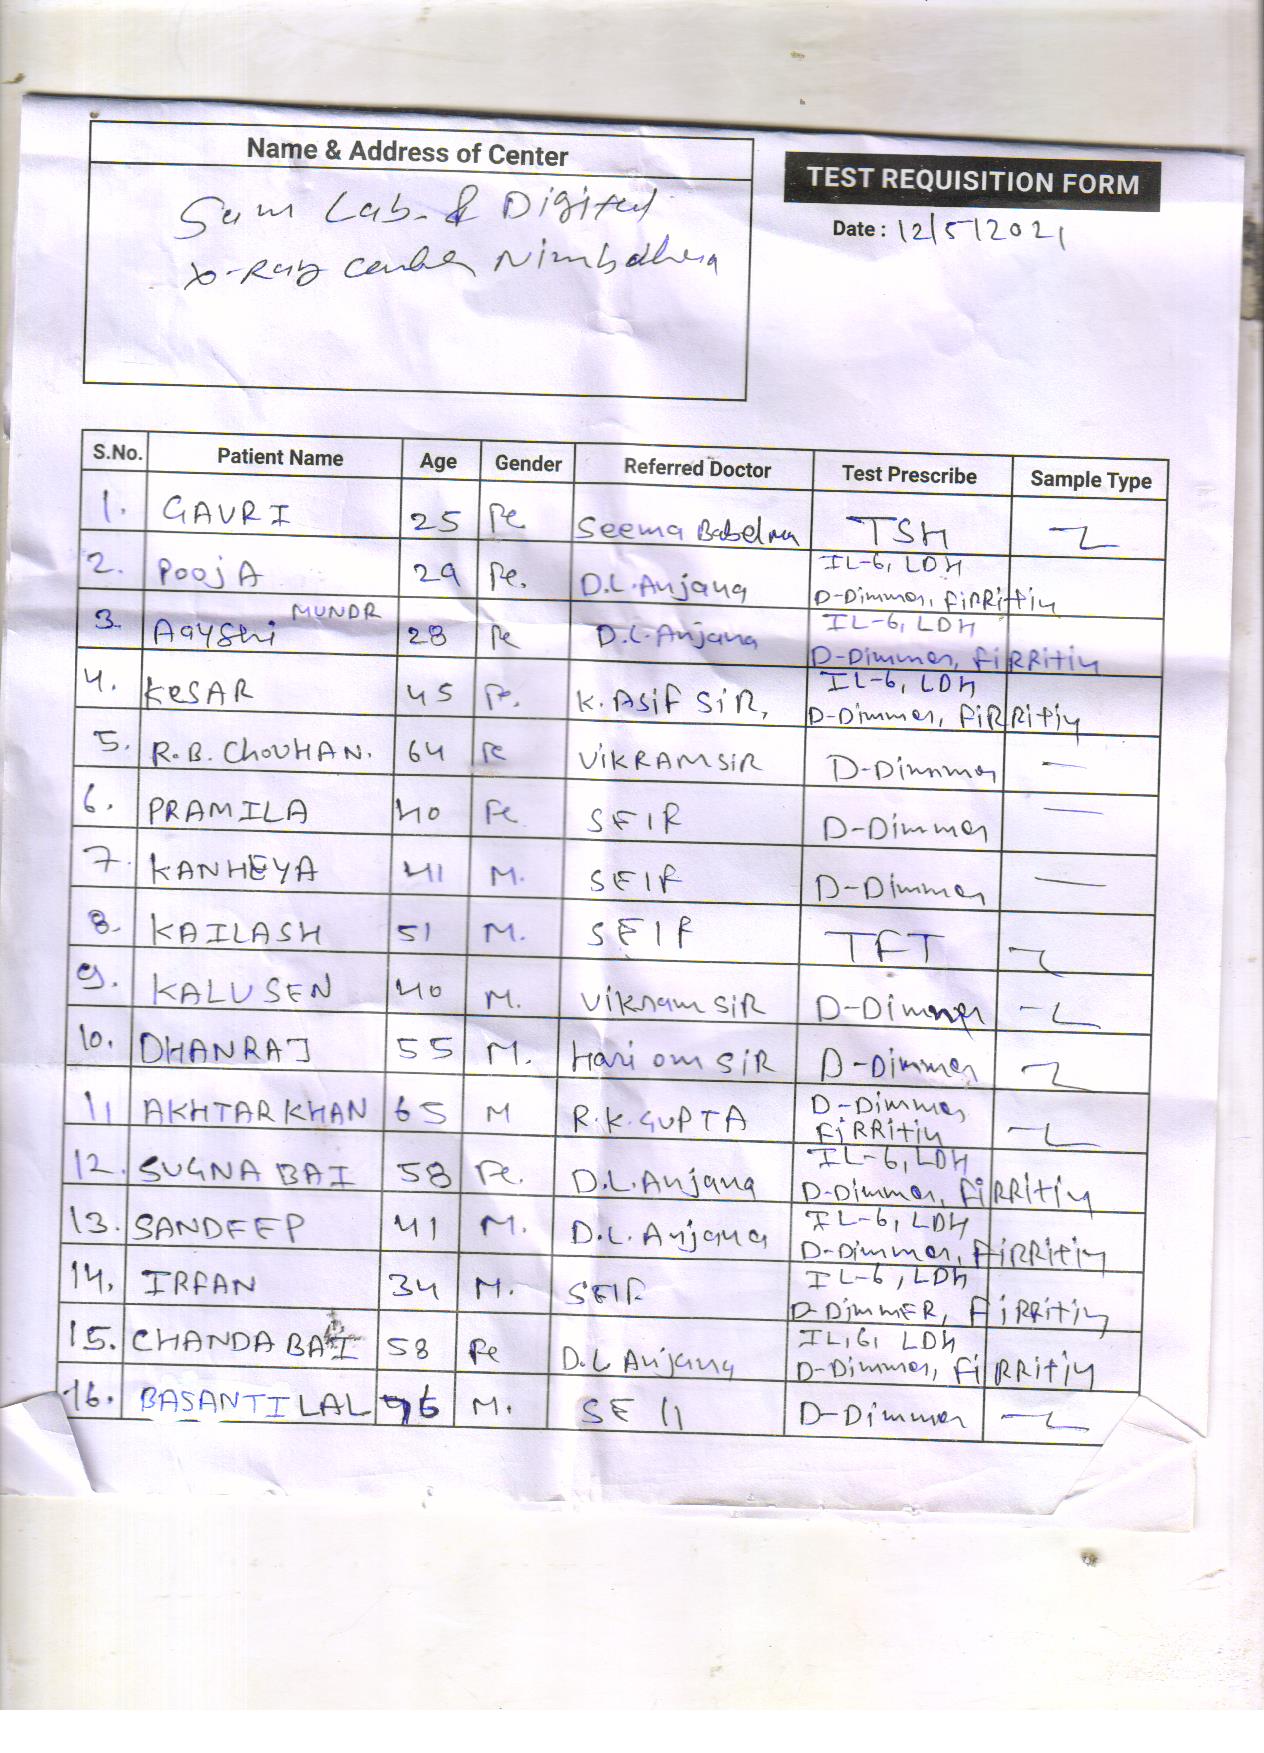 Name & Address of Center
Sum Lab. & Digital
X-Ray Center Nimbahera
TEST REQUISITION FORM
Date : 12/5/2021
S.No. Patient Name Age Gender Referred Doctor Test Prescribe Sample Type
1. GAVRI 25 Fe Seema TSH
2. POOJA 29 Fe. D.L.Anjana IL-6, LDH
D-Dimmer, FiRRitiy
3. Aayshi MUNDR 28 Fe D.L.Anjana IL-6, LDH
D-Dimmer, FiRRitiy
4. KeSAR 45 Fe. K.Asif SiR, IL-6, LDH
D-Dimmer, FiRRitiy
5. R.B. ChouHAN. 64 Fe ViKRAM SiR D-Dimmer –
6. PRAMILA 40 Fe SEIF D-Dimmer –
7. KANHEYA 41 M. SEIF D-Dimmer –
8. KAILASH 51 M. SEIF TFT
9. KALU SEN 40 M. Vikram SiR D-Dimmer
10. DHANRAJ 55 M. Hari om SiR D-Dimmer
11 AKHTAR KHAN 65 M R.K.GUPTA D-Dimmer
FiRRitiy
12. SUGNA BAI 58 Fe. D.L.Anjana IL-6, LDH
D-Dimmer, FiRRitiy
13. SANDEEP 41 M. D.L.Anjana IL-6, LDH
D-Dimmer, FiRRitiy
14. IRFAN 34 M. SEIF IL-6, LDH
D-DimmER, FiRRitiy
15. CHANDA BAI 58 Fe D.L Anjana IL,6, LDH
D-Dimmer, FiRRitiy
16. BASANTI LAL M. D-Dimmer